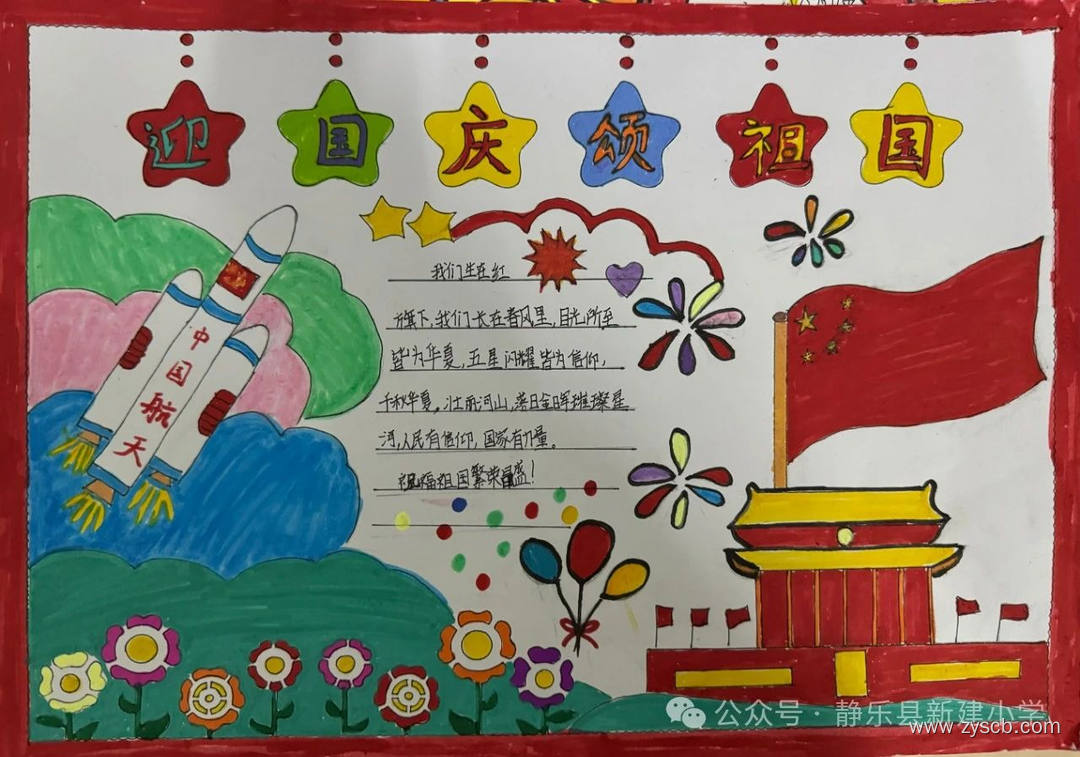 迎国庆颂祖国
中国航天
我们生在红
旗下,我们长在春风里,目光所至
皆为华夏,五星闪耀皆为信仰,
千秋华夏。壮丽河山,落日金晖璀璨星
河,人民有信仰,国家有力量。
祝福祖国繁荣昌盛!
公众号·静乐县新建小学
www.zyscb.com